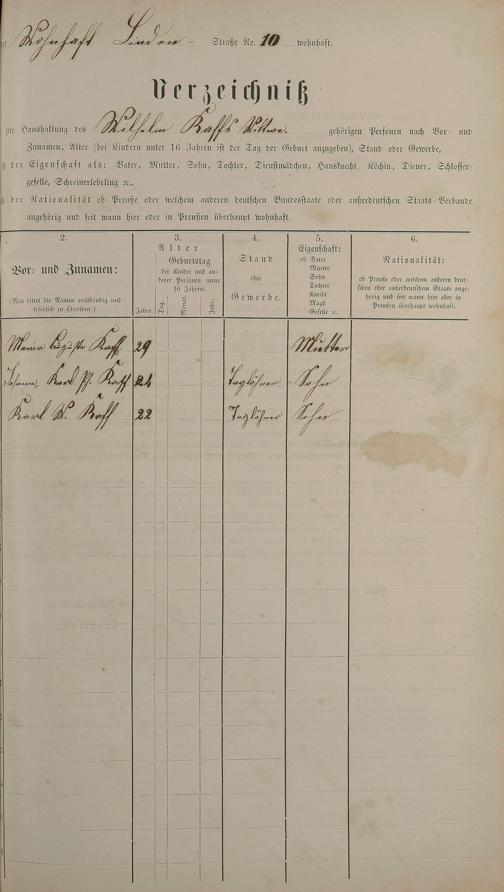 Wohnhaft Linden- Straße No. 10 wohnhaft.
Verzeichniß
zur Haushaltung des Wilhelm Kaffs Wittwe. gehörigen Personen nach Vor- und
Zunamen, Alter (bei Kindern unter 16 Jahren ist der Tag der Geburt anzugeben), Stand oder Gewerbe,
der Eigenschaft als: Vater, Mutter, Sohn, Tochter, Dienstmädchen, Hausknecht, Köchin, Diener, Schlosser-
geselle, Schreinerlehrling ꝛc.,
der Nationalität ob Preuße oder welchem anderen deutschen Bundesstaate oder außerdeutschem Staats-Verbande
angehörig und seit wann hier oder in Preußen überhaupt wohnhaft.
2.
Vor- und Zunamen:
(Man bittet die Namen vollständig und
leserlich zu schreiben.)
3.
Alter
Geburtstag
der Kinder und an-
derer Personen unter
16 Jahren.
Jahre. Tag. Monat. Jahr.
4.
Stand
oder
Gewerbe.
5.
Eigenschaft:
ob Vater
Mutter
Sohn
Tochter
Knecht
Magd
Geselle ꝛc.
6.
Nationalität:
ob Preuße oder welchem anderen deut-
schen oder außerdeutschem Staate ange-
hörig und seit wann hier oder in
Preußen überhaupt wohnhaft.
Maria Auguste Kaff 29 Mutter
Johann Karl Ph. Kaff 24 Taglöhner Sohn
Karl W. Kaff 22 Taglöhner Sohn